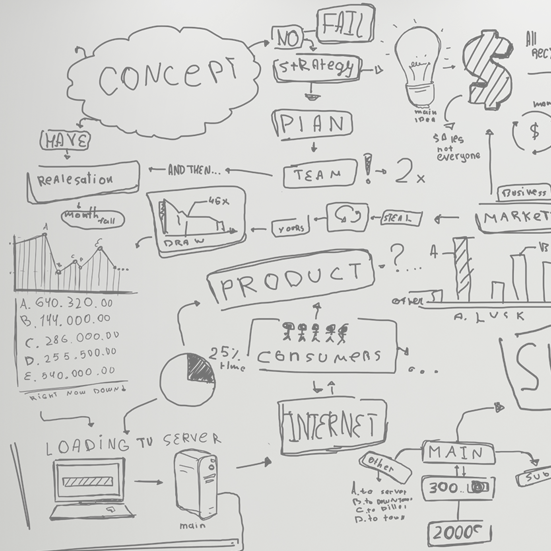 FAIL
NO
CONCEPT
STRATEGY
All
$
main
idea
SALES
not
everyone
$
PLAN
HAVE
REALESATION
AND THEN...
TEAM
! 2x
Business
MARKET
month
fall
46x
DRAW
STEAL
PRODUCT
?...
A
B
other
A. LUCK
A. 640.320.00
B. 144.000.00
C. 286.000.00
D. 255.500.00
E. 540.000.00
RIGHT NOW DOWN
25%
time
CONSUMERS
INTERNET
LOADING TO SERVER
main
MAIN
Other
300..
A. to server
C. to
D. to
Sub